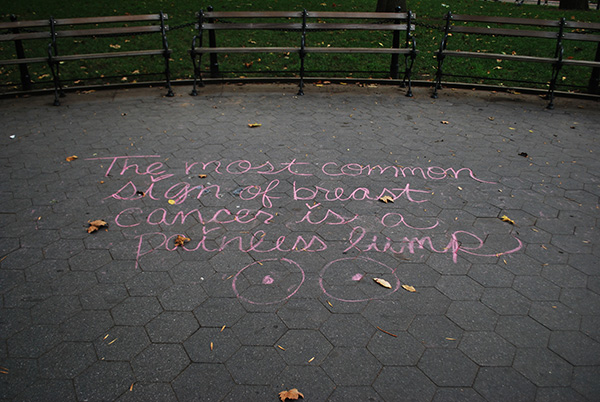 The most common
sign of breast
cancer is a
painless lump